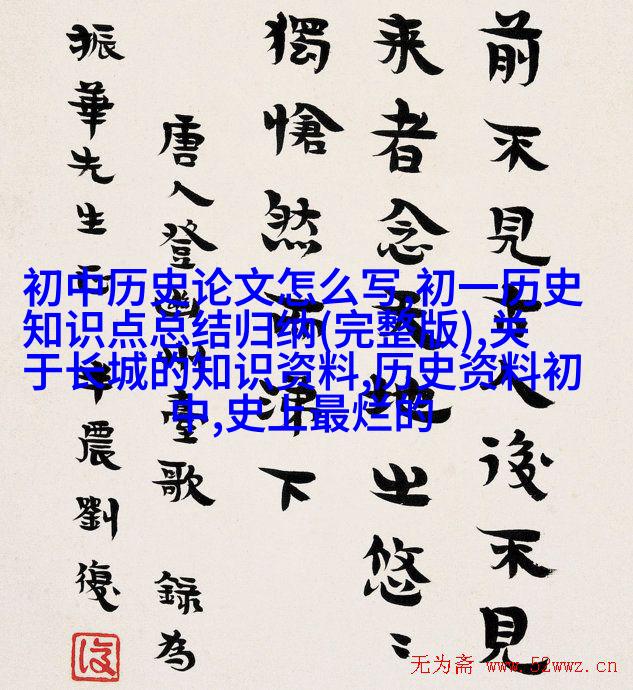 前不見古人後不見
来者念天地之悠〻
獨愴然而涕下
唐人登幽州臺歌 錄為
振華先生正 半農劉復
初中历史论文怎么写,初一历史
知识点总结归纳(完整版),关
于长城的知识资料,历史资料初
中,史上最烂的
无为斋 www.52wwz.cn